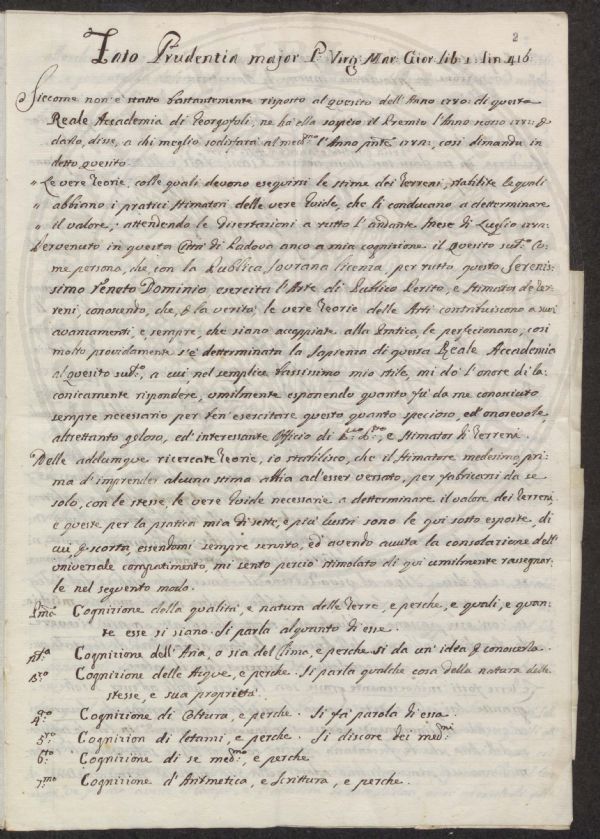 2
Fato Prudentia major P. Virg: Mar: Gior: lib: 1: lin: 416
Siccome non è stato bastantemente risposto al quesito dell'Anno di questa
Reale Accademia di Georgofoli, ne ha ella sospeso il Premio l'Anno scorso
darlo, disse, a chi meglio sodisfarà al med.mo l'Anno pnte, così dimanda in
detto quesito
" Le vere Teorie, colle quali devono eseguirsi le stime dei terreni, stabilite le quali
" abbiano i pratici stimatori delle vere Guide, che li conducano a determinare
" il valore, attendendo le Disertazioni a tutto l'andante Mese di Luglio
Pervenuto in questa Città di Padova anco a mia cognizione il Quesito sud.o co-
me persona, che con la Pubblica Sovrana licenza, per tutto questo Serenis-
simo Veneto Dominio esercita l'Arte di Publico Perito, e Stimator de Ter-
reni, conoscendo, che, p la verità, le vere Teorie delle Arti contribuiscono a suoi
avanzamenti, e sempre, che siano accoppiate alla Pratica, le perfecionano, così
molto providamente s'è determinata la Sapienza di questa Reale Accademia
al quesito sud.o, a cui, nel semplice bassissimo mio stile, mi dò l'onore di la-
conicamente rispondere, umilmente esponendo quanto fù da me conosciuto
sempre necessario per ben esercitare questo quanto specioso, ed onorevole,
altrettanto geloso, ed interessante Officio di e Stimator di Terreni.
Delle addunque ricercate Teorie, io stabilisco, che il Stimatore medesimo, pri-
ma d'imprender alcuna stima abbia ad esser versato, per fabricarsi da se
solo, con le stesse, le vere Guide necessarie a determinare il valore dei Terreni,
e queste per la pratica mia di sette, e più lustri sono le qui sotto esposte, di
cui, p scorta, essendomi sempre servito, ed avendo avuta la consolazione dell'
universale compatimento, mi sento perciò stimolato di qui umilmente rassegnar-
le nel seguente modo.
Pmo Cognizione della qualità, e natura delle Terre, e perche, e quali, e quan-
te esse si siano. Si parla alquanto di esse.
Cognizione dell'Aria, o sia del Clima, e perche si da un'idea p conoscerla.
Cognizione delle Acque, e perche. Si parla qualche cosa della natura delle
stesse, e sua proprietà.
4.to Cognizione di Coltura, e perche. Si fà parola di essa.
5.to Cognizion di letami, e perche. Si discore dei med.mi
6.to Cognizione di se med.mo, e perche
7.mo Cognizione d'Aritmetica, e Scrittura, e perche.